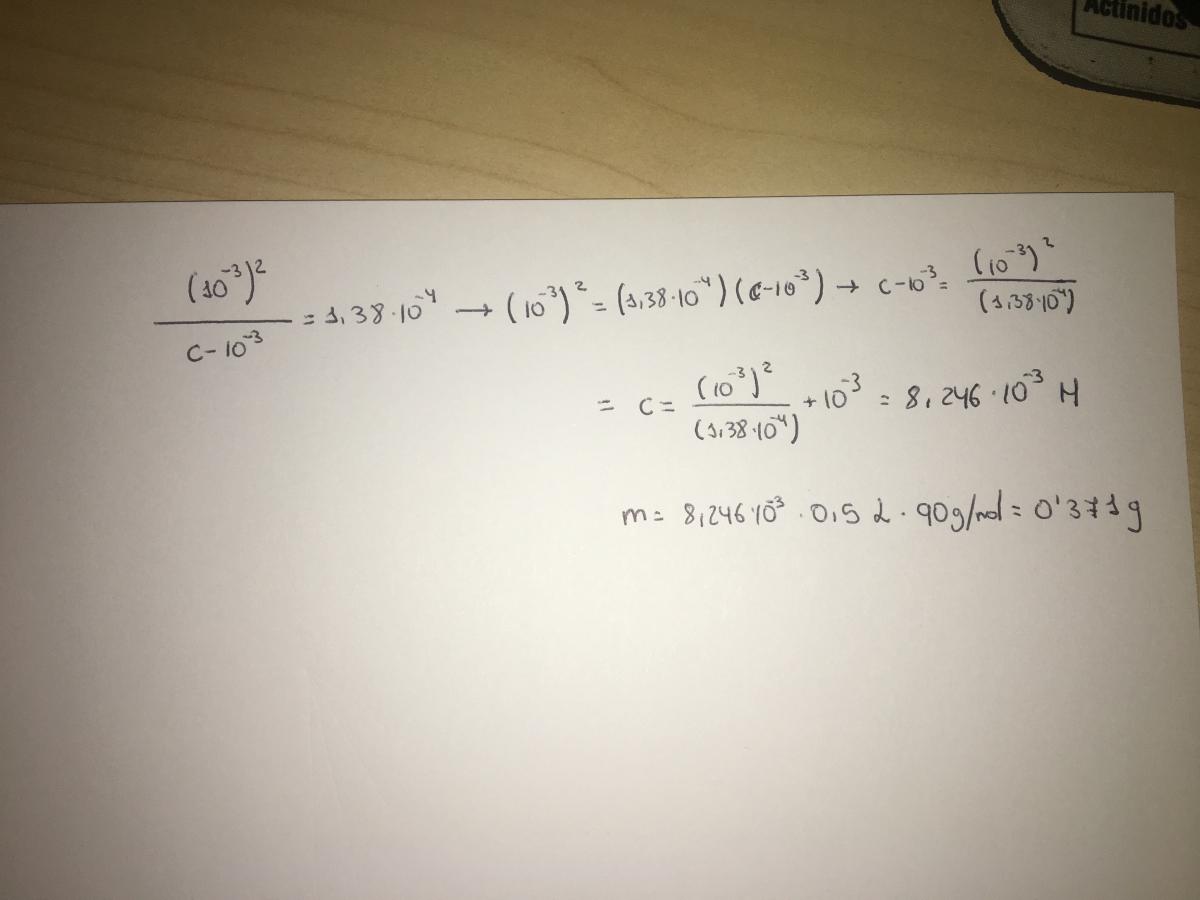 Actinidos
(10⁻³)² / C-10⁻³ = 1,38·10⁻⁴ → (10⁻³)² = (1,38·10⁻⁴)(C-10⁻³) → C-10⁻³ = (10⁻³)² / (1,38·10⁻⁴)
= C = (10⁻³)² / (1,38·10⁻⁴) + 10⁻³ = 8,246·10⁻³ M
m = 8,246·10⁻³ · 0,5 L · 90g/mol = 0'371g